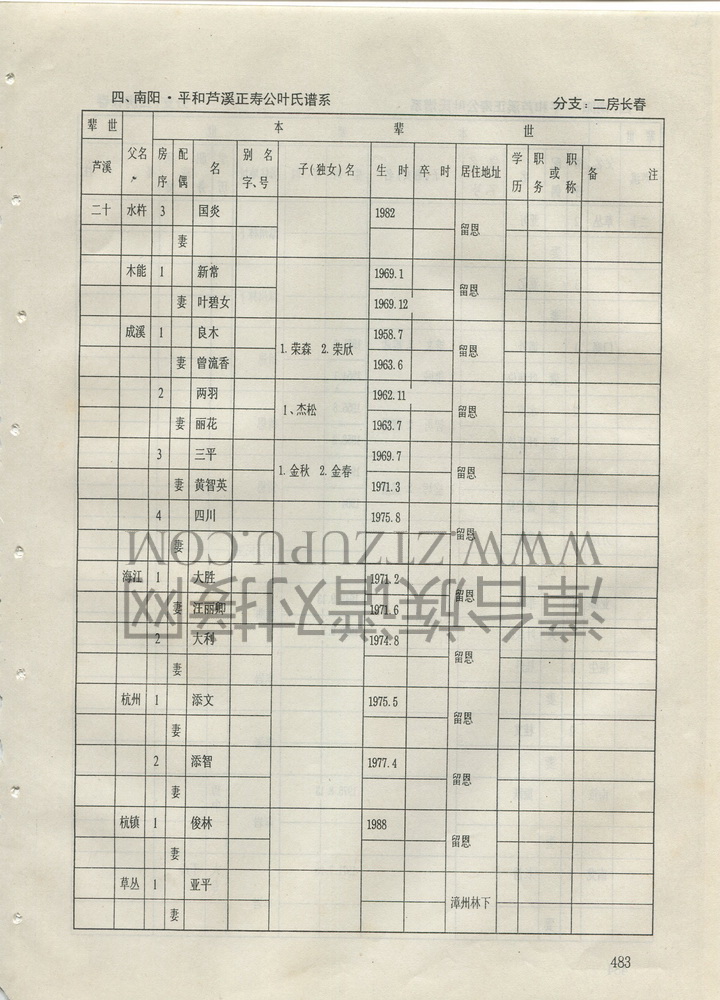 四、南阳·平和芦溪正寿公叶氏谱系 分支：二房长春
辈世 本 辈 世
芦溪 父名 房序 配偶 名 别名字、号 子(独女)名 生时 卒时 居住地址 学历 职务或职称 备注
二十 水杵 3 国炎 1982 留恩
妻
木能 1 新常 1969.1 留恩
妻 叶碧女 1969.12
成溪 1 良木 1.荣森 2.荣欣 1958.7 留恩
妻 曾流香 1963.6
2 两羽 1、杰松 1962.11 留恩
妻 丽花 1963.7
3 三平 1.金秋 2.金春 1969.7 留恩
妻 黄智英 1971.3
4 四川 1975.8 留恩
妻
WWW.ZTZUPU.COM
海江 1 大胜 1971.2 留恩
漳台族谱对接网
妻 汪丽卿 1971.6
2 大利 1974.8 留恩
妻
杭州 1 添文 1975.5 留恩
妻
2 添智 1977.4 留恩
妻
杭镇 1 俊林 1988 留恩
妻
草丛 1 亚平 漳州林下
妻
483